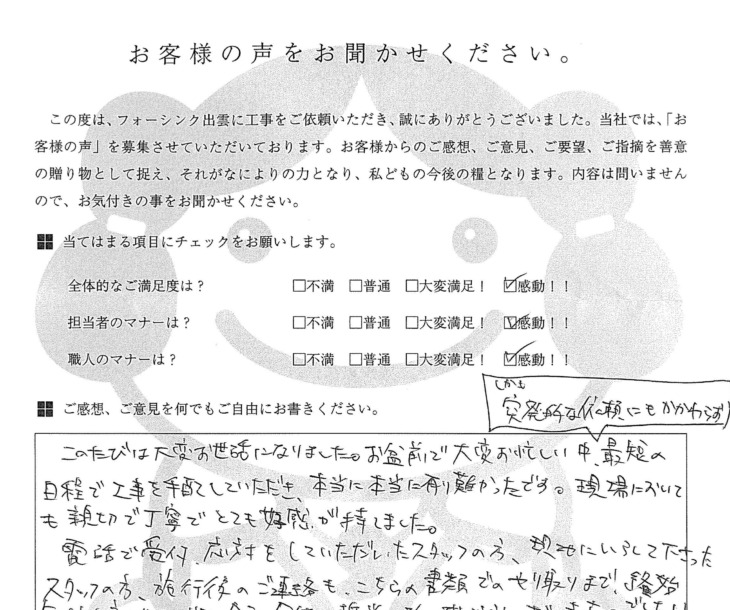 お客様の声をお聞かせください。
この度は、フォーシンク出雲に工事をご依頼いただき、誠にありがとうございました。当社では、「お
客様の声」を募集させていただいております。お客様からのご感想、ご意見、ご要望、ご指摘を善意
の贈り物として捉え、それがなによりの力となり、私どもの今後の糧となります。内容は問いません
ので、お気付きの事をお聞かせください。
当てはまる項目にチェックをお願いします。
全体的なご満足度は? □不満 □普通 □大変満足! ☑感動!!
担当者のマナーは? □不満 □普通 □大変満足! ☑感動!!
職人のマナーは? □不満 □普通 □大変満足! ☑感動!!
ご感想、ご意見を何でもご自由にお書きください。
しかも
突発的な依頼にもかかわらず
このたびは大変お世話になりました。お盆前で大変お忙しい中、最短の
日程で工事を手配していただき、本当に本当に有り難かったです。現場において
も親切で丁寧でとても好感が持てました。
電話で受付、応対をしていただいたスタッフの方、現地にいらして下さった
スタッフの方、施行後のご連絡も、こちらの書類でのやり取りまで、終始